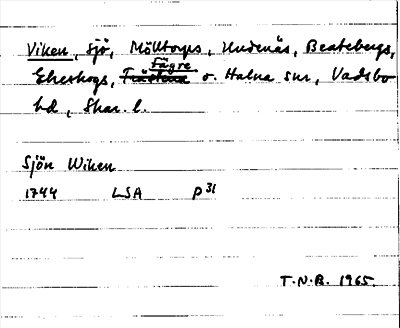 Viken, sjö, Mölltorps, Undenäs, Beatebergs,
Ekeskogs, Fägre o. Halna snr, Vadsbo
hd, Skar. l.
Sjön Wiken
1744 LSA P 31
T.N.B. 1965.